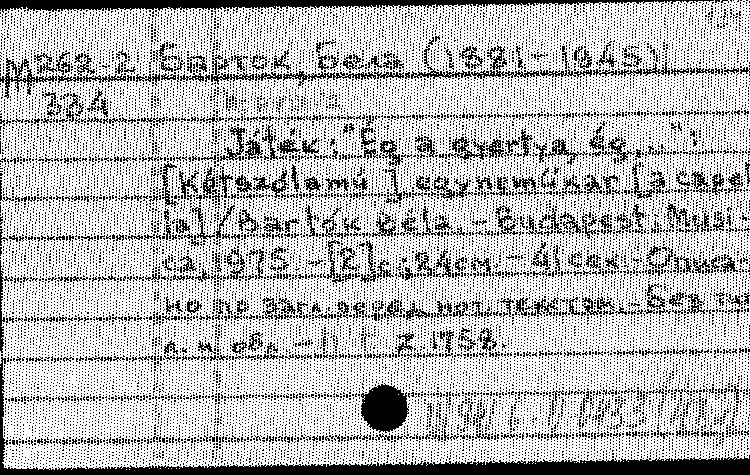 М262-2 Барток, Бела (1881-1945)
384
Játék: "Ég a gyertya, ég...":
[Kétszólamú] egyneműkar [a capel-
la] / Bartók Béla. - Budapest: Musi-
ca, 1975 - [2] с.; 24 см. - 41 сек. - Описа-
но по загл. перед нот. текстом. - Без тит.
л. и обл. - Z. 1758.